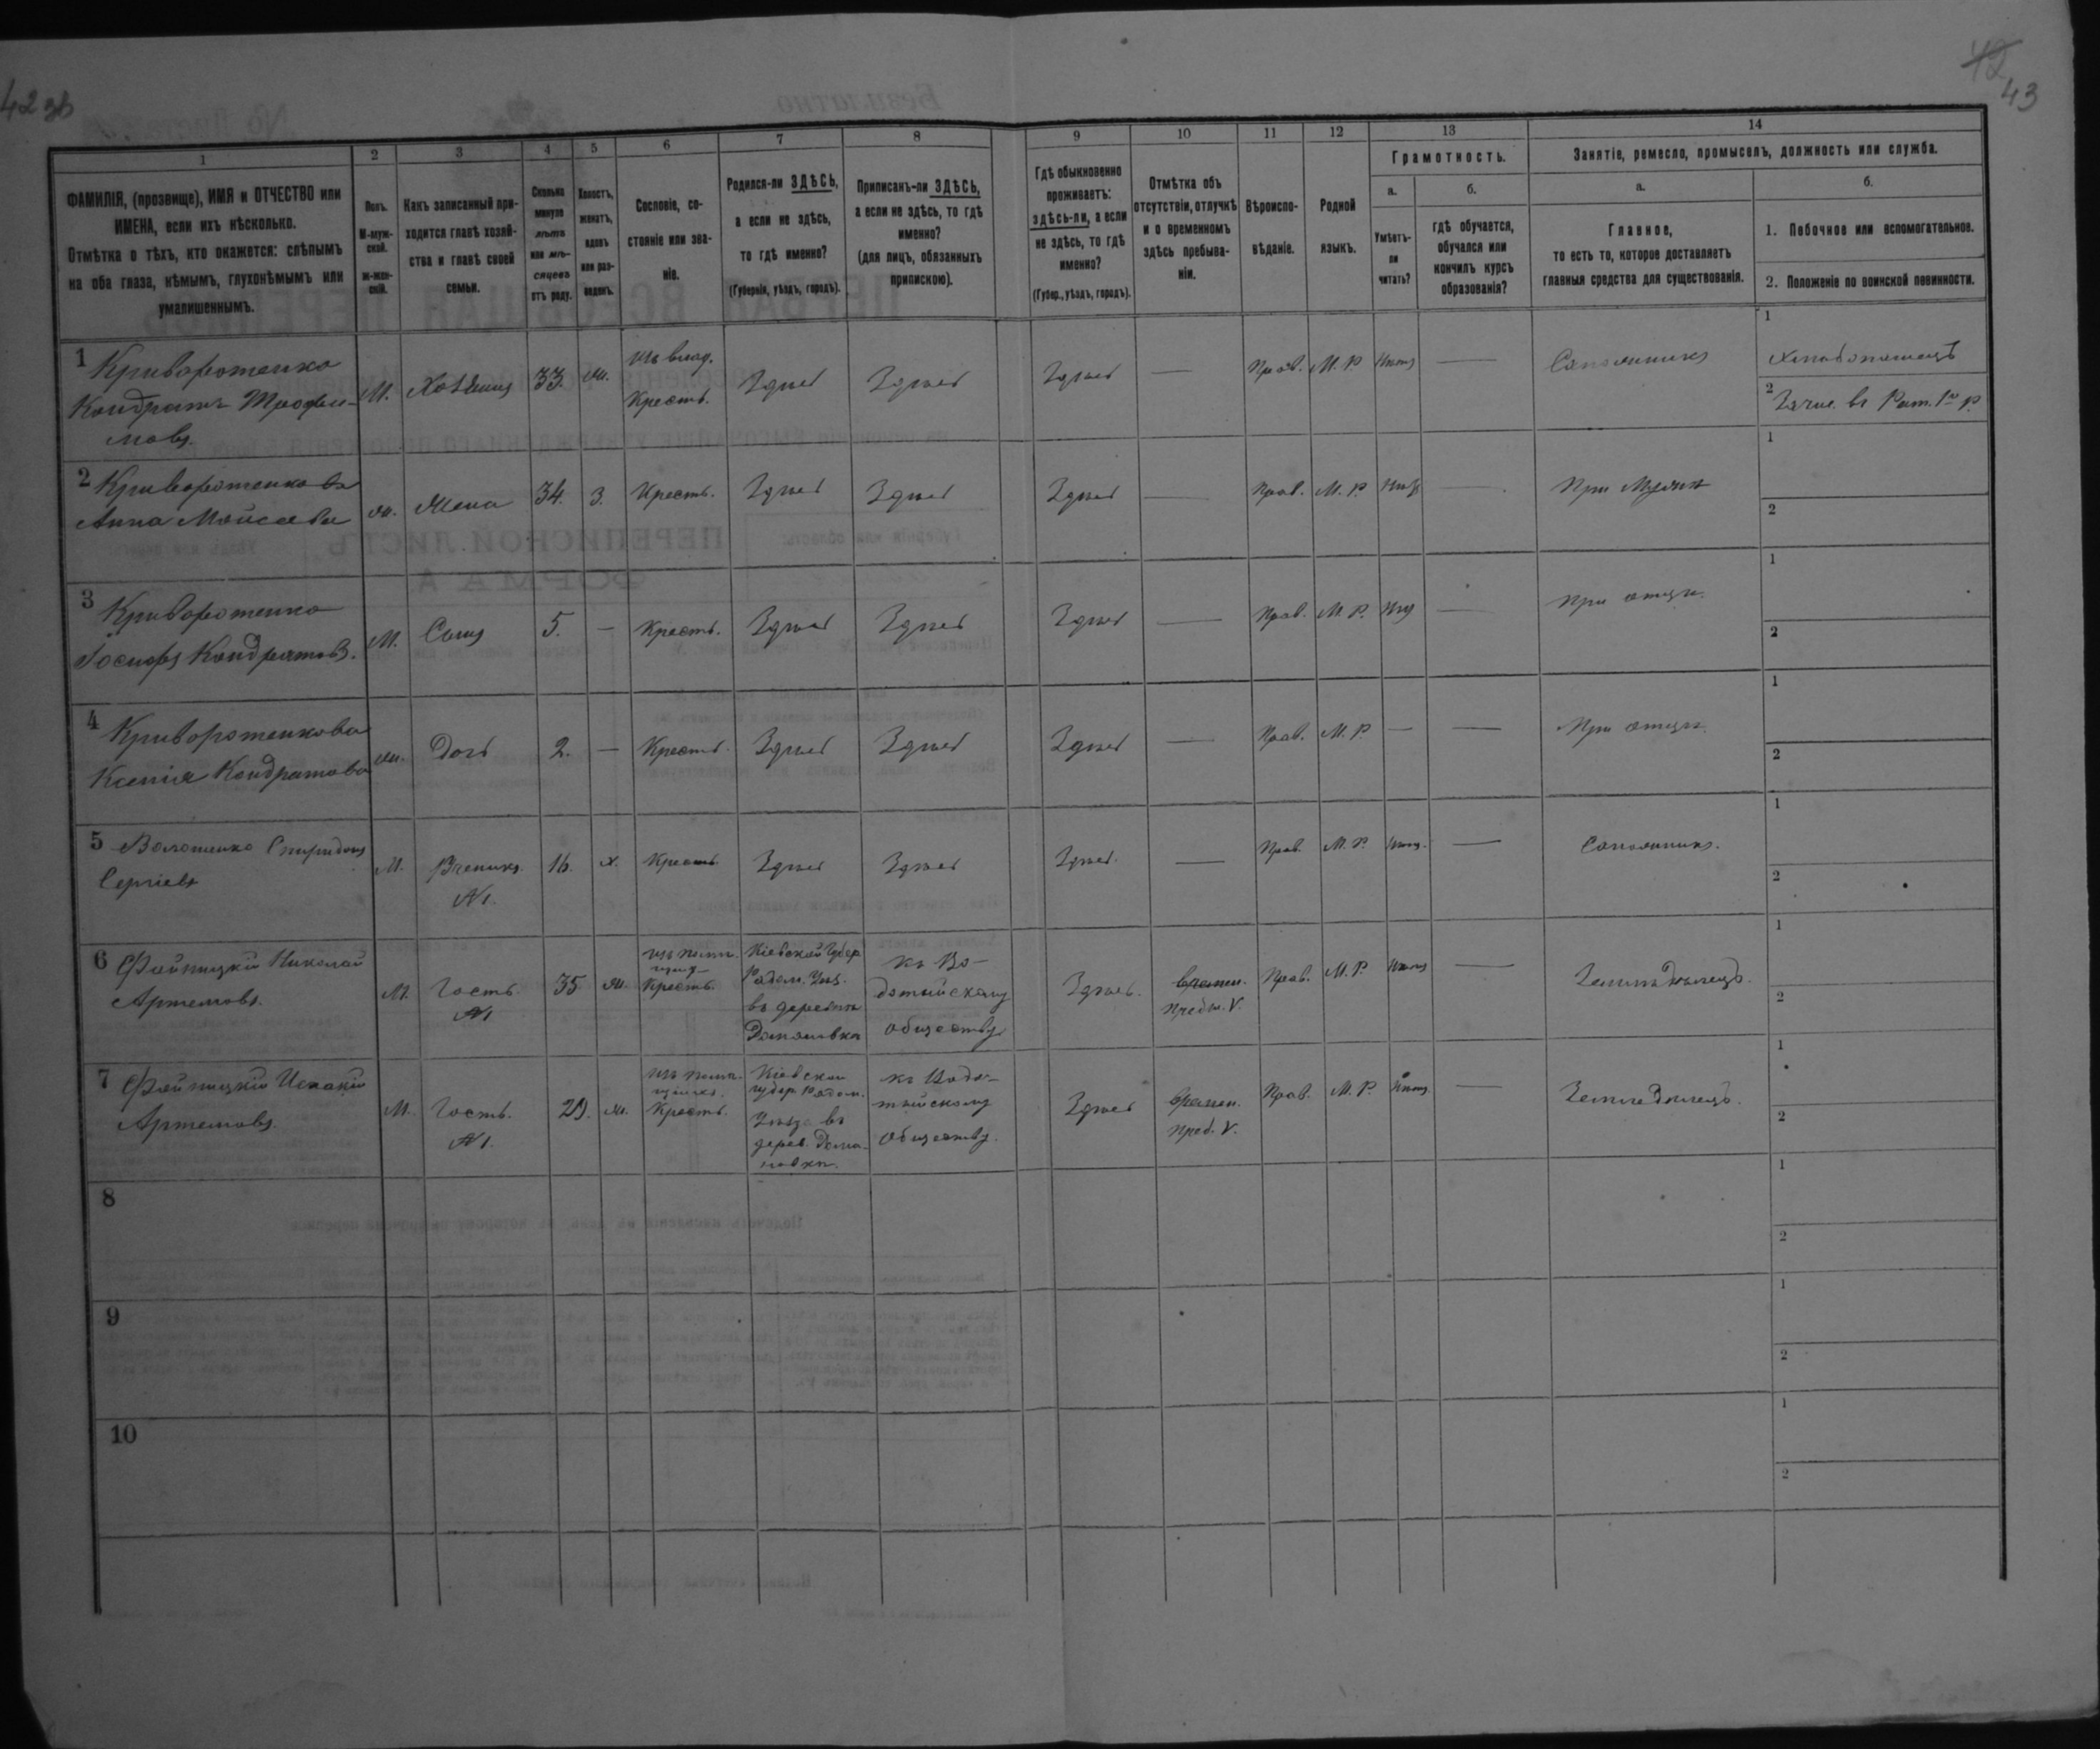 42 зв
42
43
1
2
3
4
5
6
7
8
9
10
11
12
13
14
ФАМИЛІЯ, (прозвище), ИМЯ и ОТЧЕСТВО или
ИМЕНА, если ихъ нѣсколько.
Отмѣтка о тѣхъ, кто окажется: слѣпымъ
на оба глаза, нѣмымъ, глухонѣмымъ или
умалишеннымъ.
Полъ.
М-муж-
ской.
ж-жен-
скій.
Какъ записанный при-
ходится главѣ хозяй-
ства и главѣ своей
семьи.
Сколько
минуло
лѣтъ
или мѣ-
сяцевъ
отъ роду.
Холостъ,
женатъ,
вдовъ
или раз-
веденъ.
Сословіе, со-
стояніе или зва-
ніе.
Родился-ли ЗДѢСЬ,
а если не здѣсь,
то гдѣ именно?
(Губернія, уѣздъ, городъ).
Приписанъ-ли ЗДѢСЬ,
а если не здѣсь, то гдѣ
именно?
(для лицъ, обязанныхъ
припискою).
Гдѣ обыкновенно
проживаетъ:
здѣсь-ли, а если
не здѣсь, то гдѣ
именно?
(Губер., уѣздъ, городъ).
Отмѣтка объ
отсутствіи, отлучкѣ
и о временномъ
здѣсь пребыва-
ніи.
Вѣроиспо-
вѣданіе.
Родной
языкъ.
Грамотность.
а.
Умѣетъ-
ли
читать?
б.
гдѣ обучается,
обучался или
кончилъ курсъ
образованія?
Занятіе, ремесло, промыселъ, должность или служба.
а.
Главное,
то есть то, которое доставляетъ
главныя средства для существованія.
б.
1. Побочное или вспомогательное.
2. Положеніе по воинской повинности.
1 Криворотенко
Кондратъ Трофи-
мовъ.
М. Хозяинъ 33. ж.
изъ влад.
Крестъ.
Здѣсь Здѣсь Здѣсь — Прав. М. Р. Нѣтъ — Сапожникъ
1 Хлѣбопашецъ
2 Зачис. въ Рат. 1го р.
2 Криворотенкова
Анна Мойсеева
ж. Жена 34. З. Крест. Здѣсь Здѣсь Здѣсь — Прав. М. Р. Нѣтъ — При Мужѣ
1
2
3 Криворотенко
Іосифъ Кондратовъ.
М. Сынъ 5. — Крест. Здѣсь Здѣсь Здѣсь — Прав. М. Р. Нѣтъ — При отцѣ.
1
2
4 Криворотенкова
Ксенія Кондратова
ж. Дочь 2. — Крест. Здѣсь Здѣсь Здѣсь — Прав. М. Р. — — При отцѣ.
1
2
5 Волошенко Спиридонъ
Сергіевъ
М. Ученикъ.
№1.
16. х. Крест. Здѣсь Здѣсь Здѣсь — Прав. М. Р. Нѣтъ. — Сапожникъ.
1
2
6 Файницкій Николай
Артемовъ.
М. Гость.
№1
35. ж.
Крест.
Кіевской Губер
Радом. Уѣз.
въ деревнѣ
къ Во-
дотыйскому
обществу
Здѣсь. времен.
Преб. V.
Прав. М. Р. Нѣтъ — Земледѣлецъ.
1
2
7 Файницкій Исакій
Артемовъ.
М. Гость.
№1.
29. ж.
Крест.
Кіевской
губер. Радом.
Уѣзда въ
дерев.
къ Водо-
тыйскому
обществу.
Здѣсь времен.
преб. V.
Прав. М. Р. Нѣтъ — Земледѣлецъ.
1
2
8
1
2
9
1
2
10
1
2